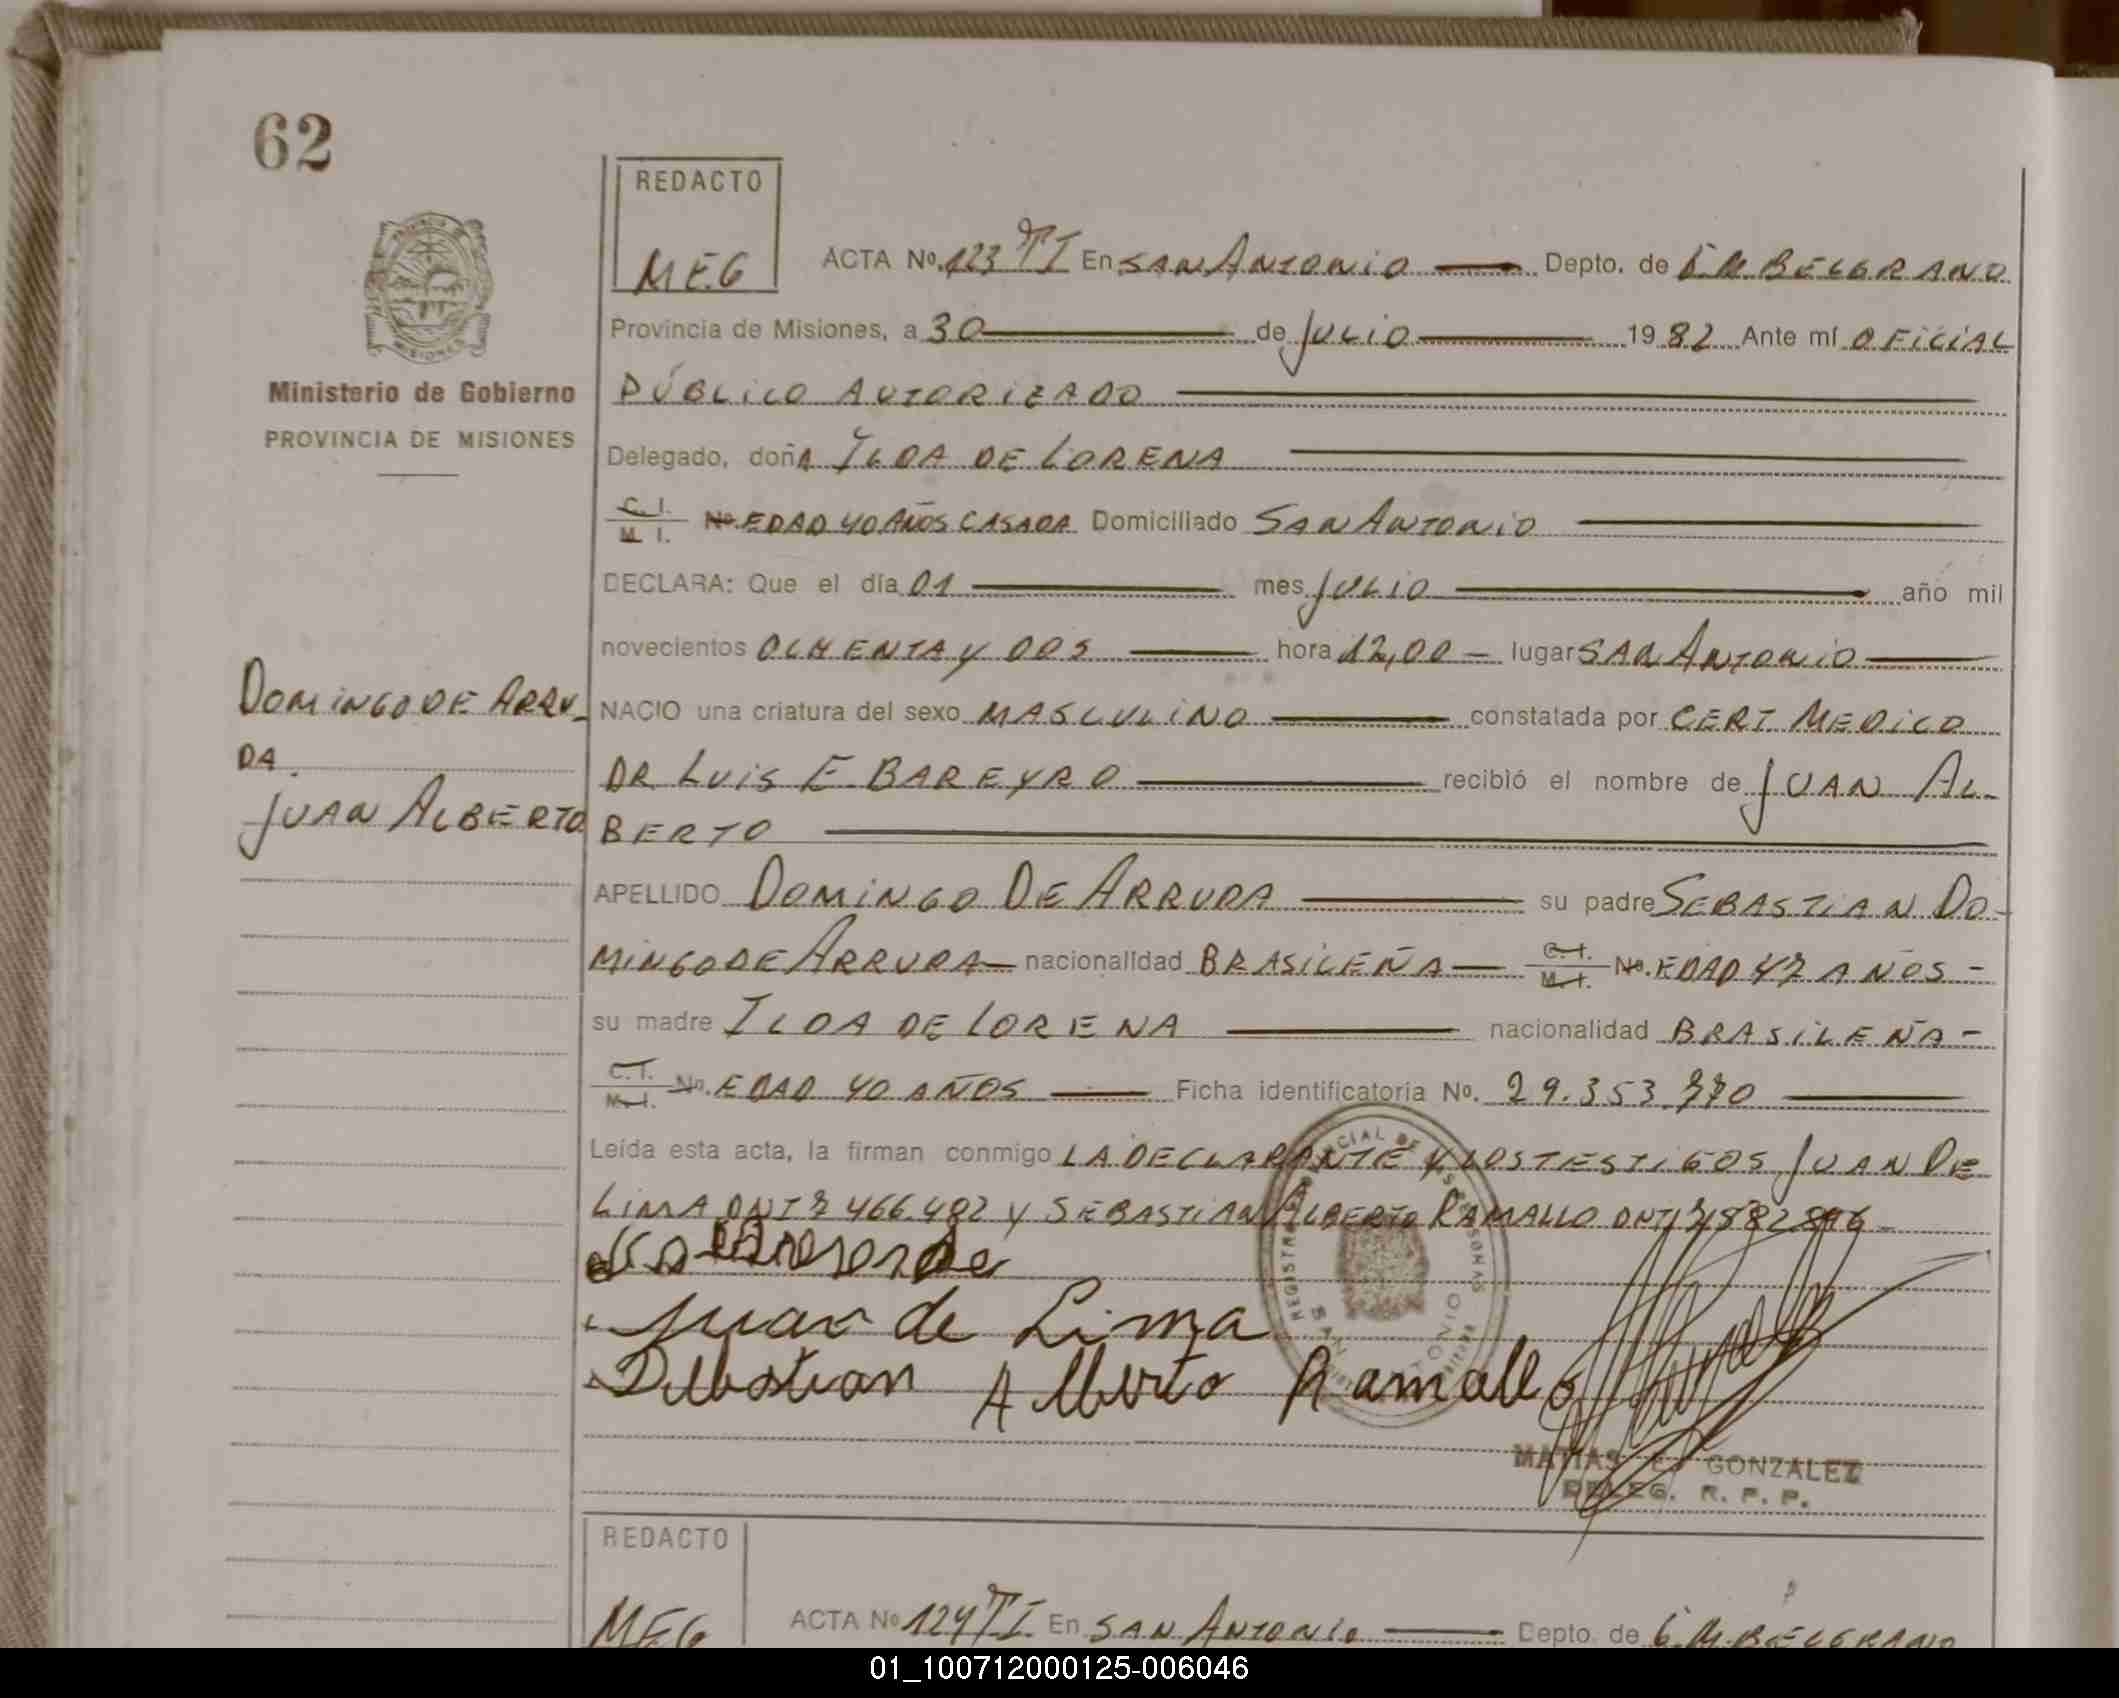 62
REDACTO
MEG
ACTA No. 123 TI En SAN ANTONIO Depto. de G M BELGRANO
Provincia de Misiones, a 30 de JULIO 1982 Ante mí OFICIAL
PÚBLICO AUTORIZADO
Ministerio de Gobierno
PROVINCIA DE MISIONES
Delegado, doñA ILDA DE LORENA
C. I. M. I. No. EDAD 40 AÑOS CASADA Domiciliado SAN ANTONIO
DECLARA: Que el día 01 mes JULIO año mil
novecientos OCHENTA Y DOS hora 12,00 lugar SAN ANTONIO
DOMINGO DE ARRU-
DA.
JUAN ALBERTO
NACIO una criatura del sexo MASCULINO constatada por CERT. MEDICO
DR. LUIS E BAREYRO recibió el nombre de JUAN AL-
BERTO
APELLIDO DOMINGO DE ARRUDA su padre SEBASTIAN DO-
MINGO DE ARRUDA nacionalidad BRASILEÑA C. I. M. I. No. EDAD 47 AÑOS -
su madre ILDA DE LORENA nacionalidad BRASILEÑA -
C. I. M. I. No. EDAD 40 AÑOS Ficha identificatoria No. 29.353.770
Leída esta acta, la firman conmigo LA DECLARANTE Y LOS TESTIGOS JUAN DE
LIMA DNI 7 466.482 Y SEBASTIAN ALBERTO RAMALLO DNI
Juan de Lima
Sebastian Alberto Ramallo
MATIAS E. GONZALEZ
DELEG. R. P. P.
REDACTO
MEG
ACTA No 124 TI En SAN ANTONIO Depto. de G.M. BELGRANO
01_100712000125-006046